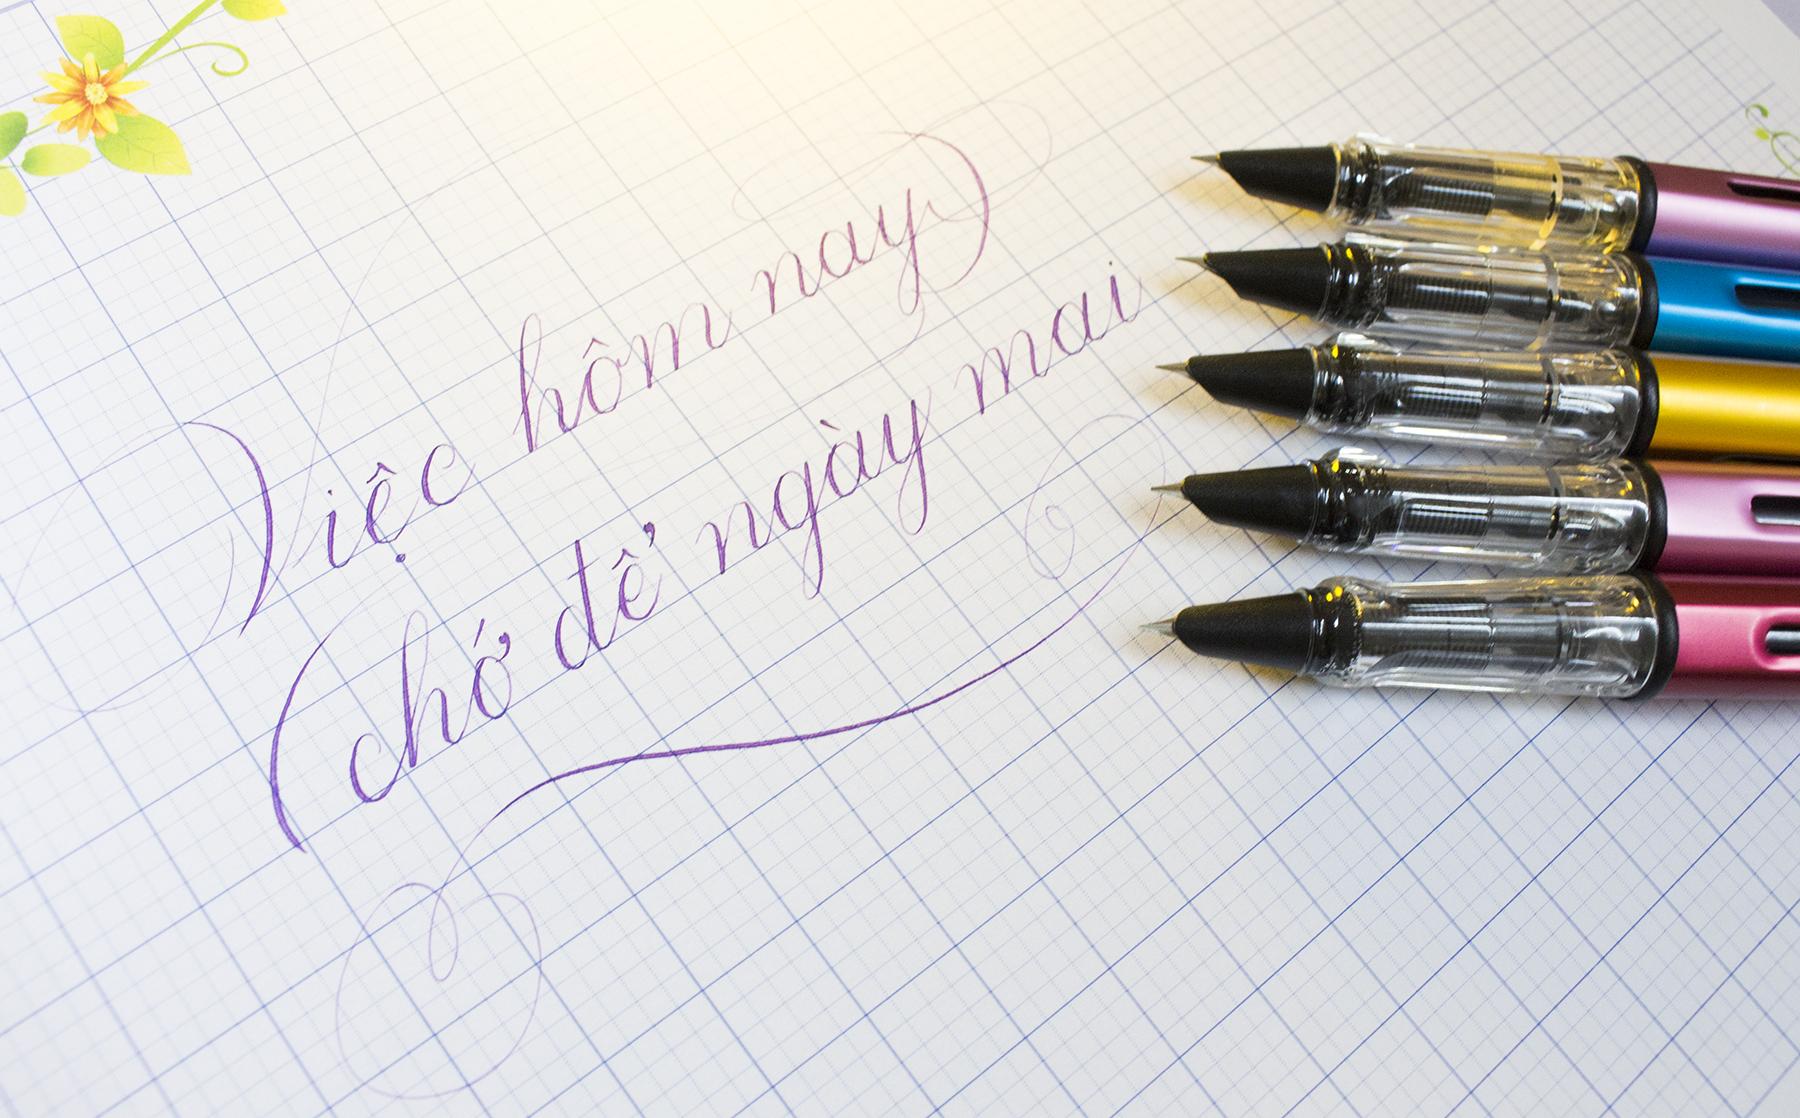 Việc hôm nay
chớ để ngày mai